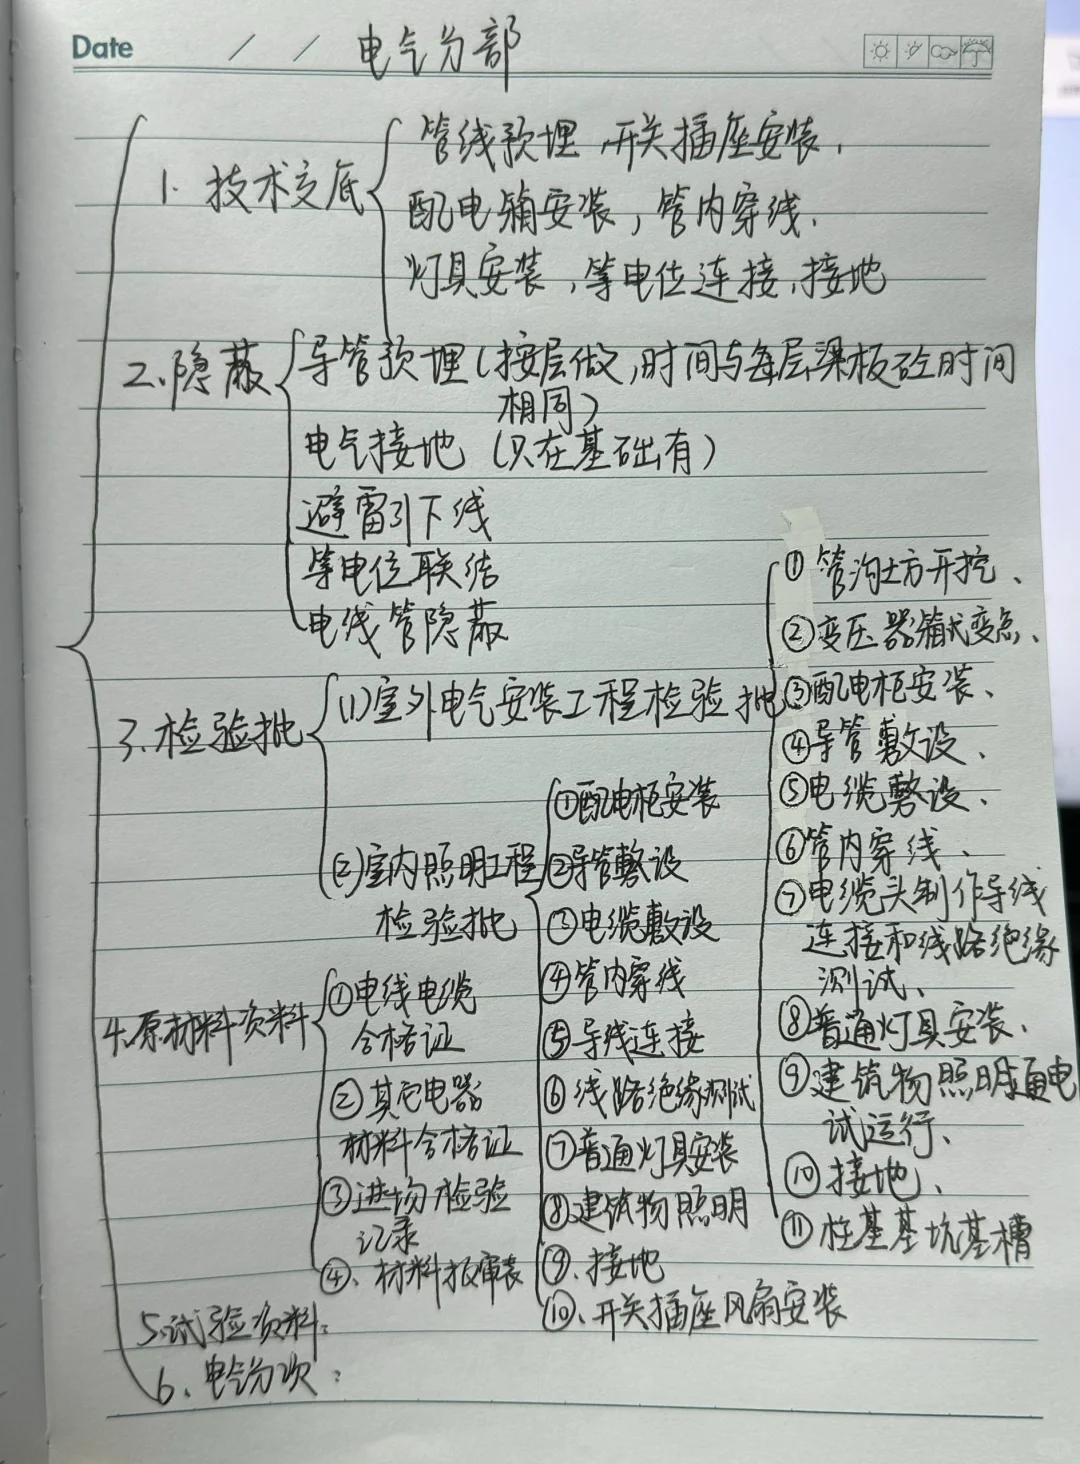 Date / / 电气分部
1. 技术交底
管线预埋,开关插座安装,
配电箱安装,管内穿线,
灯具安装,等电位连接,接地
2、隐蔽
导管预埋(按层做,时间与每层梁板砼时间
相同)
电气接地(只在基础有)
避雷引下线
等电位联结
电线管隐蔽
3、检验批
(1)室外电气安装工程检验批
①管沟土方开挖、
②变压器箱式变点、
③配电柜安装、
④导管敷设、
⑤电缆敷设、
⑥管内穿线、
⑦电缆头制作导线
连接和线路绝缘
测试、
⑧普通灯具安装、
⑨建筑物照明通电
试运行、
⑩接地、
⑪桩基基坑基槽
(2)室内照明工程
检验批
①配电柜安装
②导管敷设
③电缆敷设
④管内穿线
⑤导线连接
⑥线路绝缘测试
⑦普通灯具安装
⑧建筑物照明
⑨、接地
⑩、开关插座风扇安装
4、原材料资料
①电线电缆
合格证
②其它电器
材料合格证
③进场检验
记录
④、材料报审表
5、试验资料:
6、电气分项: